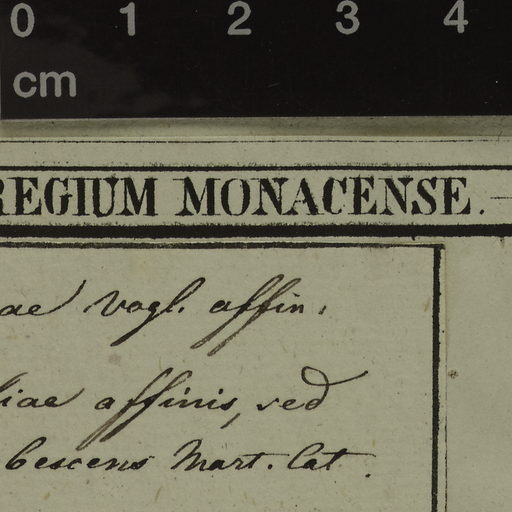 0 1 2 3 4
cm
REGIUM MONACENSE.
ae Vogl. affin.
liae affinis, sed
bescens Mart. Cat.